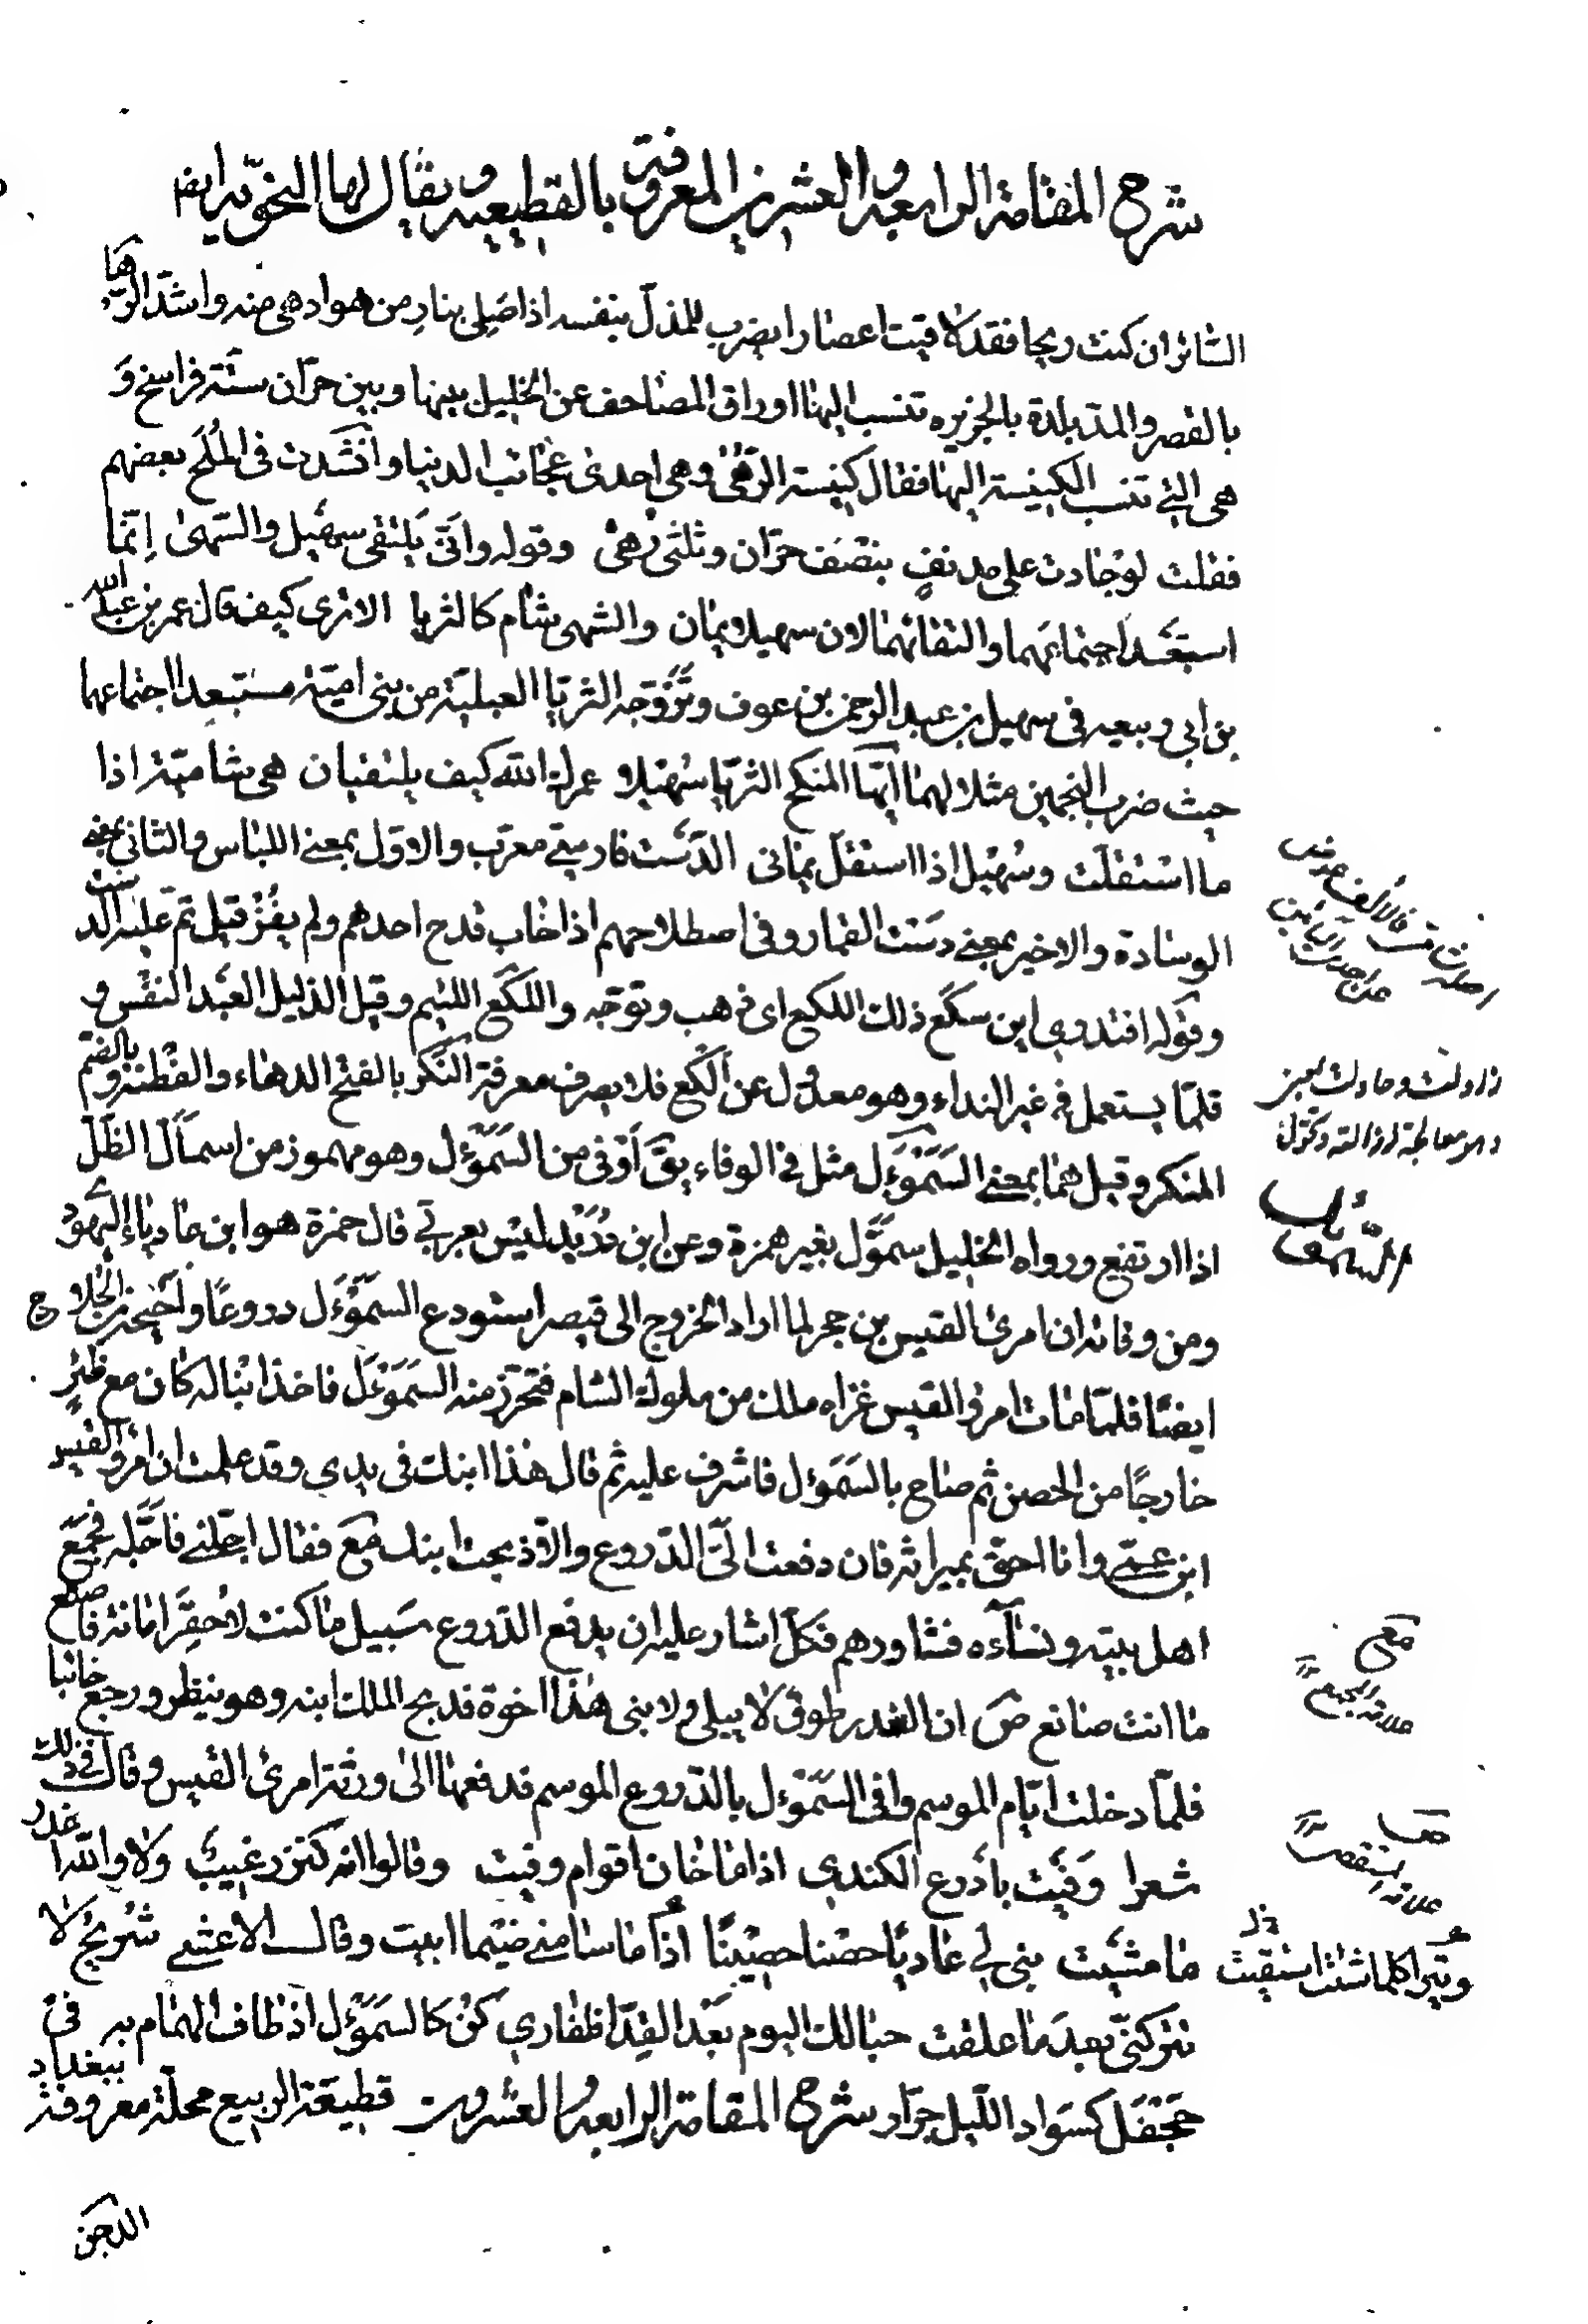 شرح المقامة الرابعة والعشرين المعروفة بالقطيعية ويقال لها النحوية ايضا
السائر ان كنت ريحا فقد لاقيت اعصارا يضرب للمذل بنفسه اذا صلى بنار من هو ادهى منه واشد الرها
بالقصر والمد بلدة بالجزيره تنسب اليها اوراق المصاحف عن الخليل بينها وبين حران ستة فراسخ و
هى التى تنسب الكنيسة اليها فقال كنيسة الرهى وهى احدى عجائب الدنيا وانشدت فى الملح بعضهم
فقلت لو جادت على مدنف بنصف حران وثلثى رهى وقوله وانى يلتقى سهيل والسهى انما
استبعد اجتماعهما والتقائهما لان سهيلا يمان والسهى شام كالثريا الا ترى كيف قال عمر بن عبد الله
بن ابى ربيعه فى سهيل بن عبد الرحمن بن عوف وتزوجه الثريا العبلية من بنى امية مستبعدا اجتماعهما
حيث ضرب النجمين مثلا لهما ايها المنكح الثريا سهيلا عمرك الله كيف يلتقيان هى شامية اذا
ما استقلت وسهيل اذا استقل يمانى الدست فارسى معرب والاول بمعنى اللباس والثانى بمعنى
الوسادة والاخير بمعنى دست القمار وفى اصطلاحهم اذا خاب قدح احدهم ولم يفز قيل تم عليه الدست
وقوله افتدرى اين سكع ذلك اللكع اى ذهب وتوجه واللكع اللئيم وقيل الذليل العبد النفس و
قلما يستعمل فى غير النداء وهو معدول عن الكع فلا يصرف معرفة النكر بالفتح الدهاء والفطنة وبالضم
المنكر وقيل هما بمعنى السموءل مثل فى الوفاء يق اوفى من السموءل وهو مهموز من اسمأل الظل
اذا ارتفع ورواه الخليل سمول بغير همزة وعن ابن دريد ليس بعربى قال حمزة هو ابن عادياء اليهودى
ومن وفائه ان امرئ القيس بن حجر لما اراد الخروج الى قيصر استودع السموءل دروعا واحيحة بن الجلاح
ايضا فلما مات امرؤ القيس غزاه ملك من ملوك الشام فتحرز منه السموءل فاخذ ابنا له كان مع ظئر
خارجا من الحصن ثم صاح بالسموءل فاشرف عليه ثم قال هذا ابنك فى يدى وقد علمت ان امرؤ القيس
ابن عمى وانا احق بميراثه فان دفعت الى الدروع والا ذبحت ابنك مع فقال اجلنى فاجله فجمع
اهل بيته ونسآءه فشاورهم فكل اشار عليه ان يدفع الدروع سبيل ما كنت لاحقر امانة فاصنع
ما انت صانع ص ان الغدر طوق لا يبلى ولابنى هذا اخوة فذبح الملك ابنه وهو ينظر ورجع خائبا
فلما دخلت ايام الموسم وافى السموءل بالدروع الموسم فدفعها الى ورثة امرئ القيس وقال فى ذلك
شعرا وفيت بأدرع الكندى اذا ما خان اقوام وفيت وقالوا انه كنز رغيب ولا والله اغدر
ما مشيت بنى لى عاديا حصنا حصينا اذا ما سامنى ضيما ابيت وقال الاعشى شريح لا
تتركنى بعد ما علقت حبالك اليوم بعد القد اظفارى كن كالسموءل اذ طاف الهمام به فى
جحفل كسواد الليل جرار شرح المقامة الرابعة والعشرون قطيعة الربيع محلة معروفة ببغداد
السموءل
معى
وبيرا كلما شئت استقيت
الدجن